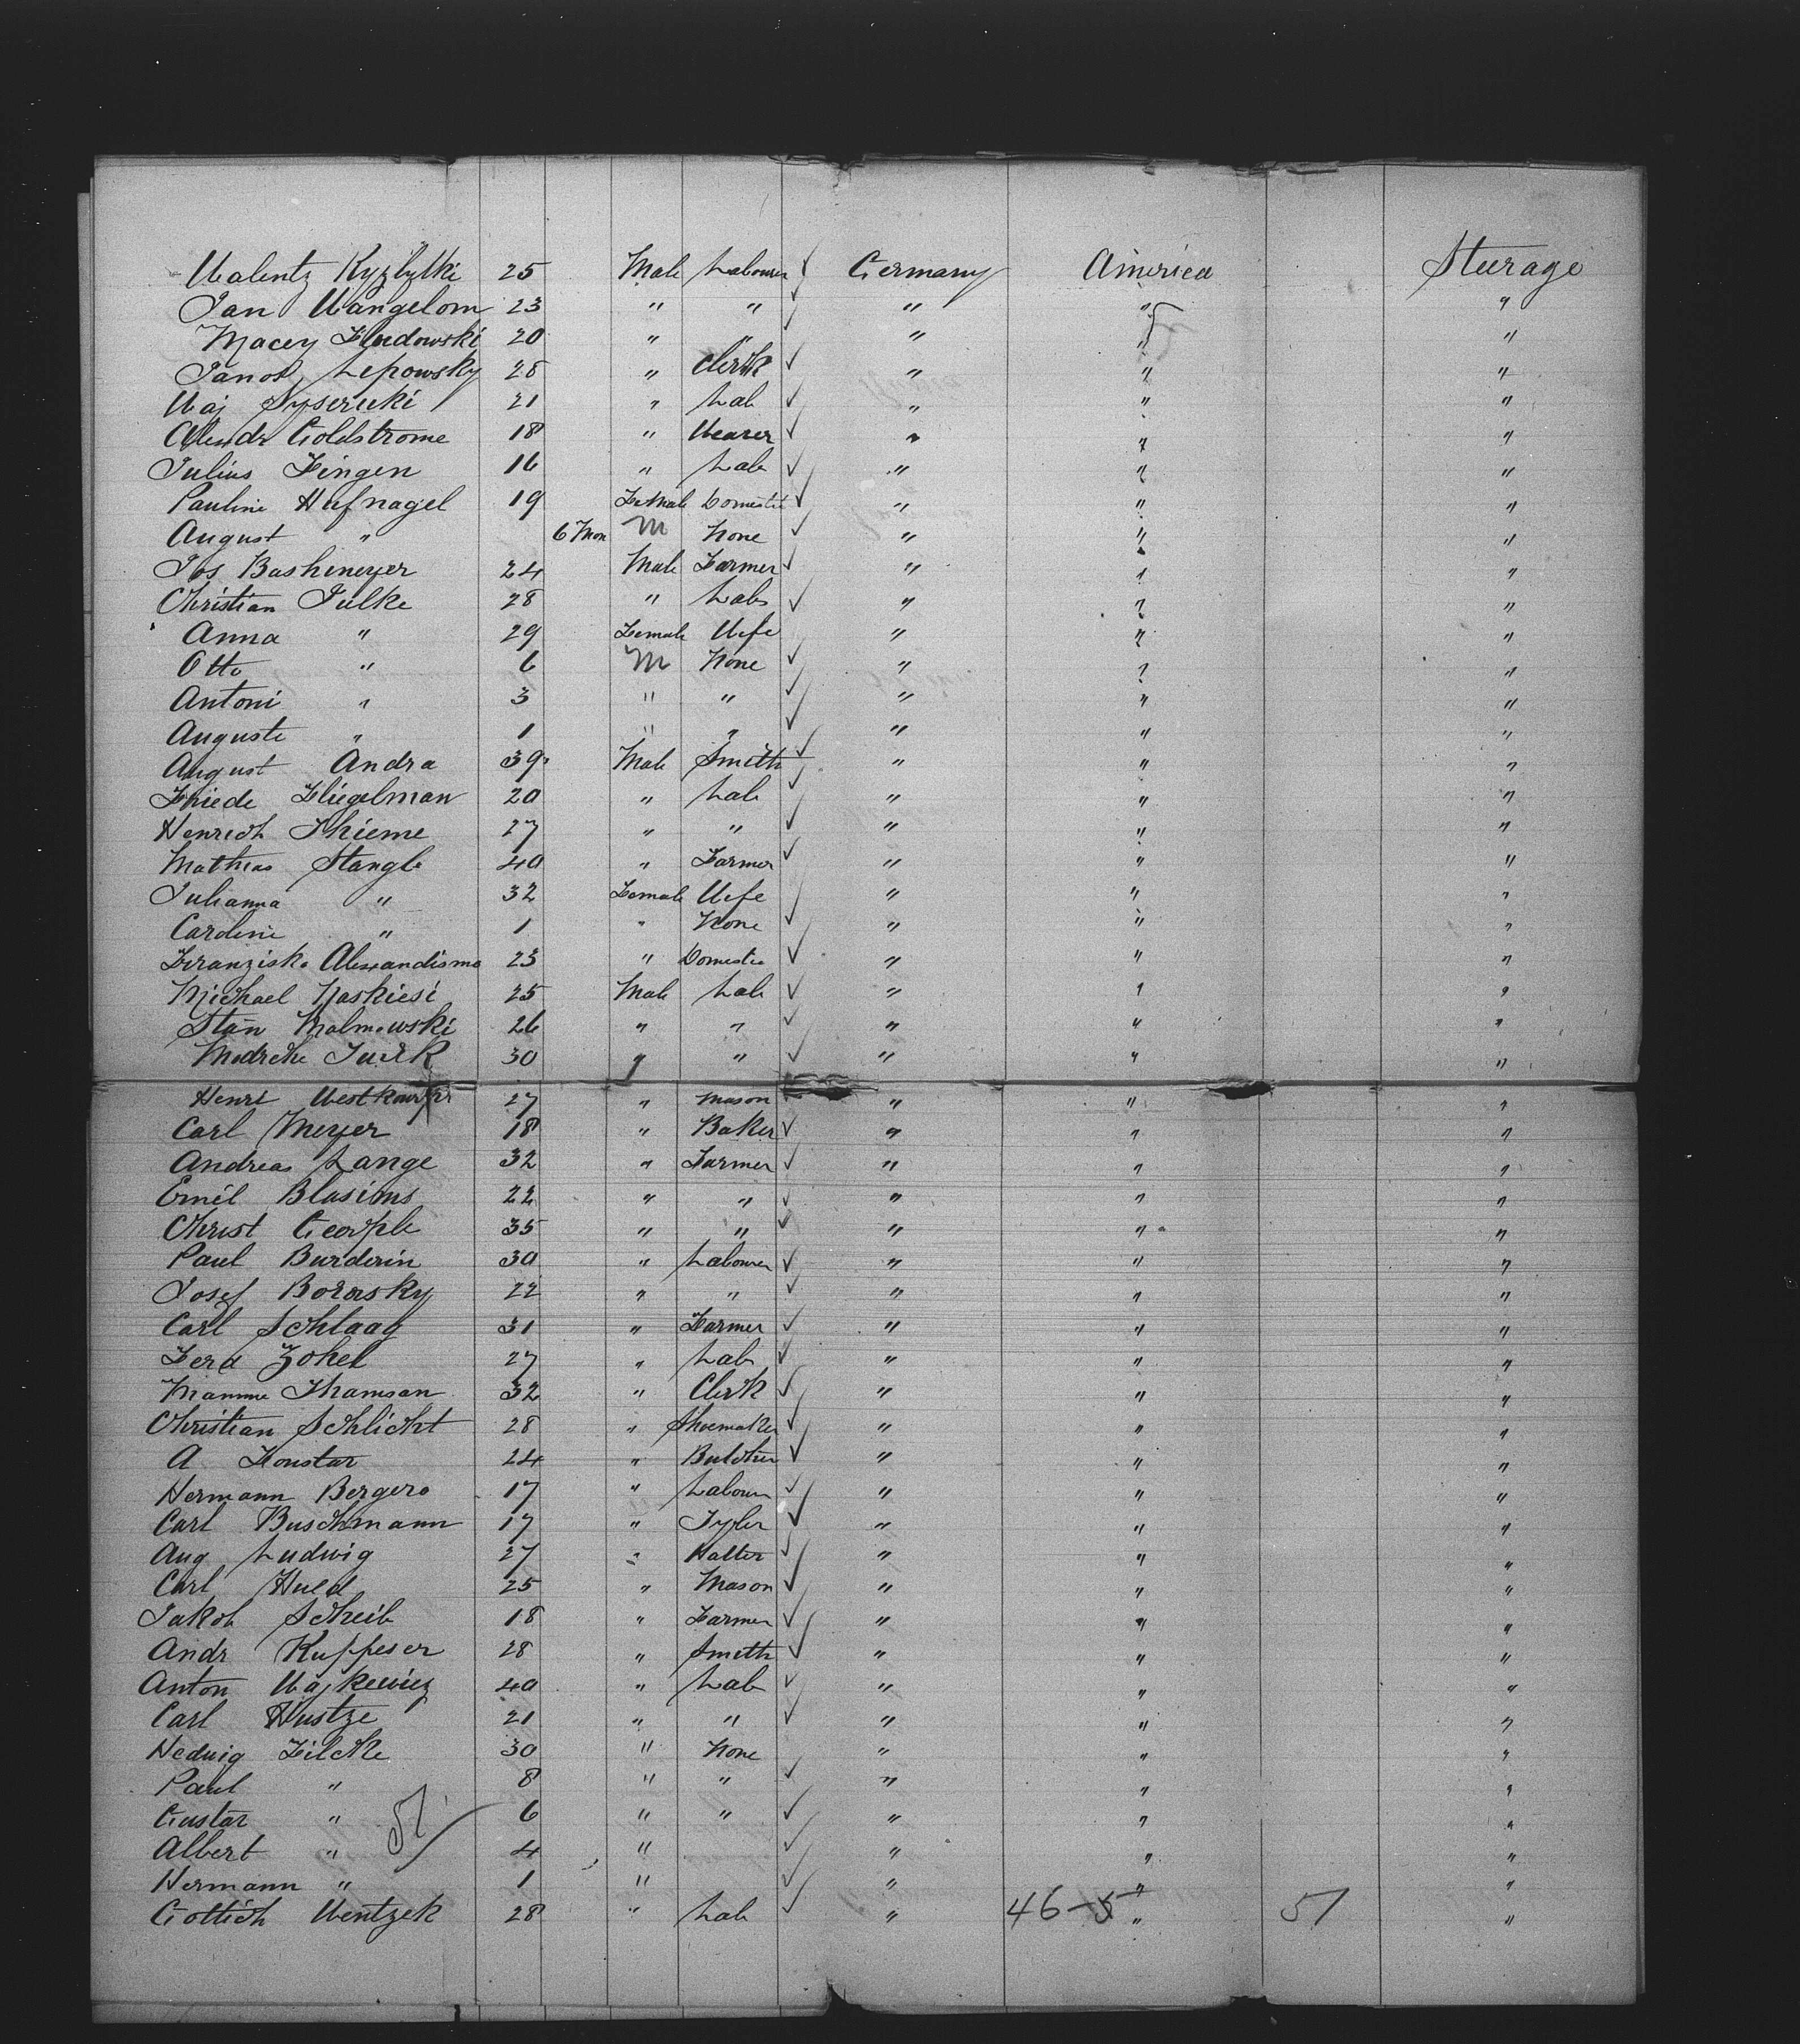 Walentz Kyzbytki 25 Male Labourer ✓ Germany America Steerage
Jan Wangelom 23 " " ✓ " " "
Macey Fludowski 20 " " " " "
Janos Lepowsky 28 " Clerk ✓ " " "
Waj Syseruki 21 " Lab ✓ " " "
Alexdr Goldstrome 18 " Wearer ✓ " " "
Julius Fingen 16 " Lab ✓ " " "
Pauline Hufnagel 19 Female Domestic ✓ " " "
August " 6 Mon M None ✓ " " "
Jos Bashmeyer 24 Male Farmer ✓ " " "
Christian Julke 28 " Lab ✓ " " "
Anna " 29 Female Wife " " "
Otto " 6 M None ✓ " " "
Antoni " 3 " " ✓ " " "
Auguste " 1 " " ✓ " " "
August Andra 39 Male Smith ✓ " " "
Friede Fliegelman 20 " Lab ✓ " " "
Henrich Thieme 27 " " ✓ " " "
Mathias Stangle 40 " Farmer ✓ " " "
Julianna " 32 Female Wife " " "
Carolini " 1 " None ✓ " " "
Franziska Alexandisma 23 " Domestic ✓ " " "
Michael Naskiesi 25 Male Lab ✓ " " "
Stan Malmowski 26 " " ✓ " " "
30 " " ✓ " " "
Henri 27 " Mason " " "
Carl Meyer 18 " Baker ✓ " " "
Andreas Lange 32 " Farmer ✓ " " "
Emil Blasims 22 " " ✓ " " "
Christ 35 " " ✓ " " "
Paul Burderin 30 " Labourer ✓ " " "
Josef Borosky 22 " " ✓ " " "
Carl Schlaag 31 " Farmer ✓ " " "
Ferd Zokel 27 " Lab ✓ " " "
Mamme Thamsan 32 " Clerk ✓ " " "
Christian Schlicht 28 " Shoemaker ✓ " " "
A Konstar 24 " Butcher ✓ " " "
Hermann Bergero 17 " Labour ✓ " " "
Carl Buschmann 17 " Tyler ✓ " " "
Aug Ludwig 27 " Halter ✓ " " "
Carl Hued 25 " Mason ✓ " " "
Jakob Scheib 18 " Farmer ✓ " " "
Andr Kuppeser 28 " Smith ✓ " " "
Anton Wajkewiez 40 " Lab ✓ " " "
Carl Hustze 21 " " ✓ " " "
Hedwig Filcke 30 " None " " "
Paul " 8 " " ✓ " " "
Gustav " 6 " " ✓ " " "
Albert " 51 4 " ✓ " " "
Hermann " 1 " ✓ " " "
Gottich Wentzek 28 " Lab ✓ " 46-5 " 51 "